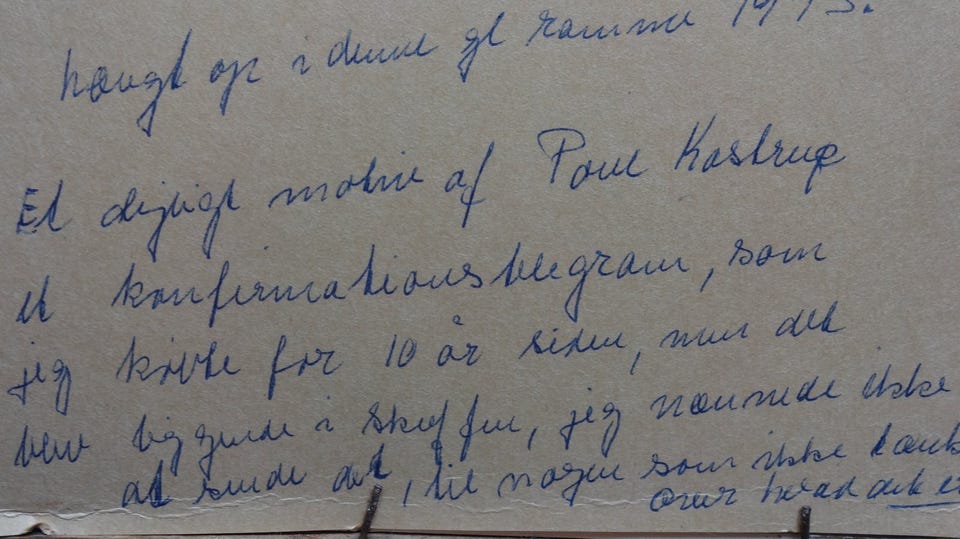 hængt op i denne gl ramme 1973.
Et dejligt motiv af Poul Kastrup
et konfirmationstelegram, som
jeg købte for 10 år siden, men det
blev liggende i skuffen, jeg nænnede ikke
at sende det, til nogen som ikke tænk
over hvad det er